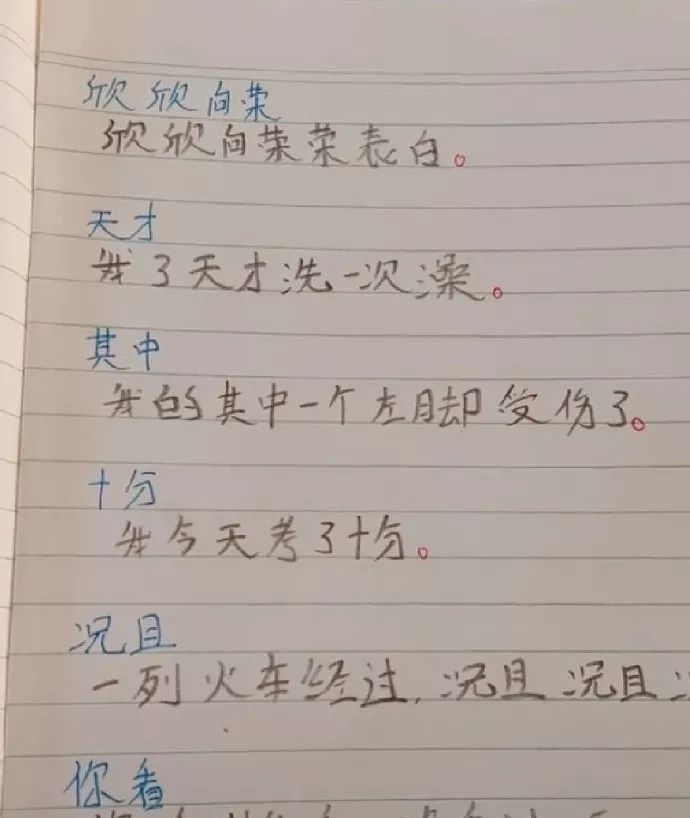 欣欣向荣
欣欣向荣荣表白。
天才
我3天才洗一次澡。
其中
我的其中一个左脚受伤了。
十分
我今天考了十分。
况且
一列火车经过,况且况且
你看